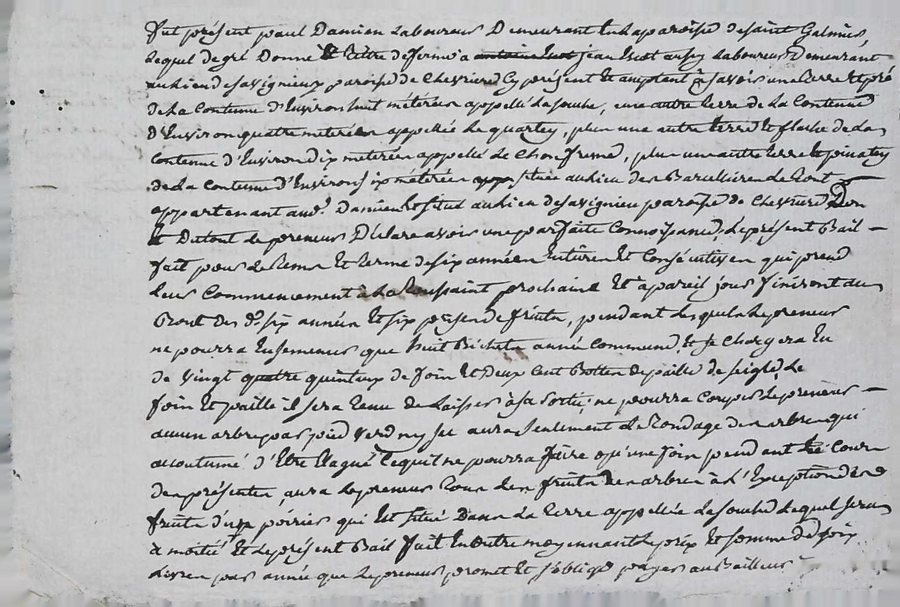 fut présent paul Damien Laboureur Demeurant en la paroisse de saint Galmier,
Lequel de gré Donne à titre de ferme à jean huot aussy Laboureur Demeurant
au lieu de savignieux paroisse de Chevrieres Cy présent et acceptant à savoir une terre et pré
de La Contenue d'Environ huit métérées appellé La souche, une autre terre de La Contenue
d'Environ quatre meterées appellée Le quartey, plus une autre terre et flache de La
Contenue d'Environ dix meterées appellé Le Chonfrema, plus une autre terre
de La Contenue d'Environ six métérées située au lieu des Le tout
appartenant aud. Damien et situé au lieu de savignieu paroisse de Chevrieres Don
et Dutout Le preneur Déclare avoir une parfaite Connoissance, Le présent Bail
fait pour Le tems Et terme de six années Entieres Et Consécutives qui prend
Leur Commencement à La toussaint prochaine Et à pareil jour finiront au
Bout des d. six années Et six prises de fruits, pendant Lesquels Le preneur
ne pourra Ensemencer que huit Bichets année Commune, et se Chargera En
de Vingt quatre quintaux de foin Et Deux Cent Bottes de paille de seigle, Le
foin Et paille il sera tenu de Laisser à sa sortie; ne pourra Couper Le preneur
aucun arbre par pied Verd ny sec aura seulement Le Rondage des arbres qui
accoutumé d'Etre Elagué Lequel ne pourra faire qu'une fois pendant Le Cours
des présentes, aura Le preneur tous Les fruits des arbres à L'Exception des
fruits d'un poirier qui Est situé Dans La terre appellée La souche Lequel sera
à moitié Et Le présent Bail fait En outre moyennant Le prix Et somme de
Livres par année que Le preneur promet Et s'oblige payer au Bailleur